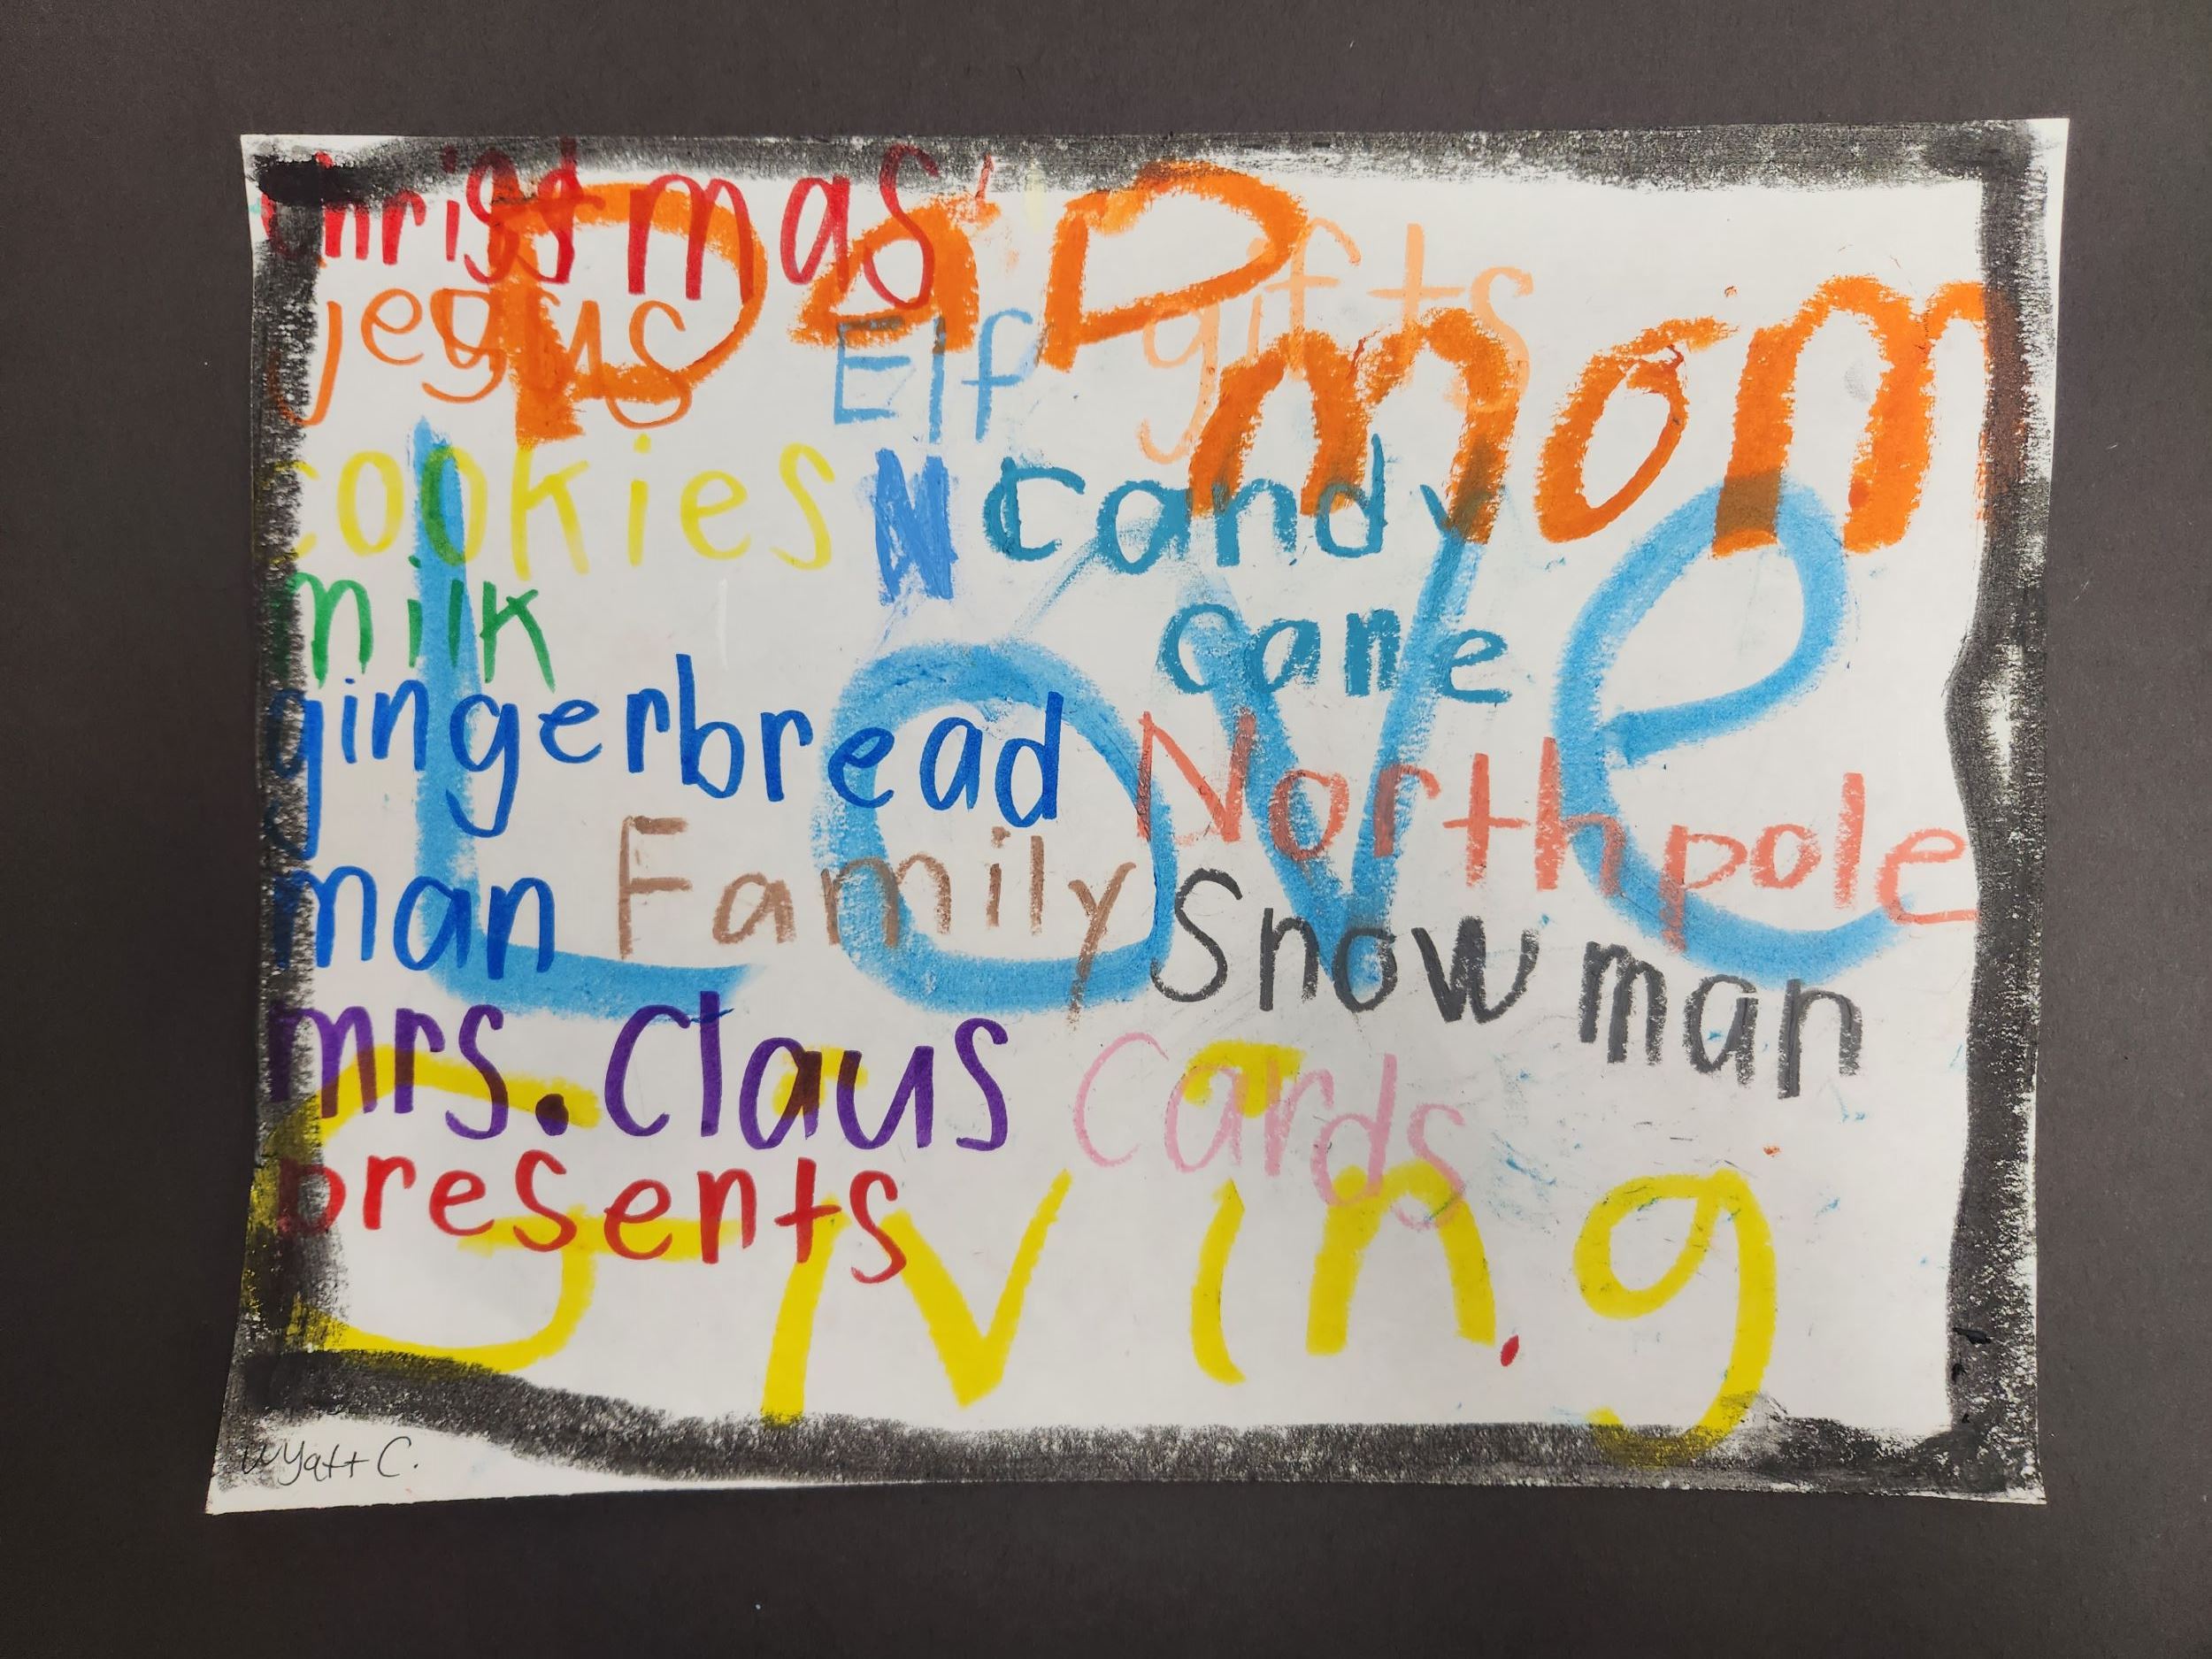 christmas
DaD
jesus
Elf
gifts
mom
cookies
N
candy
cane
milk
Love
gingerbread
man
Family
North pole
Snowman
mrs. Claus
cards
presents
Giving
Wyatt C.